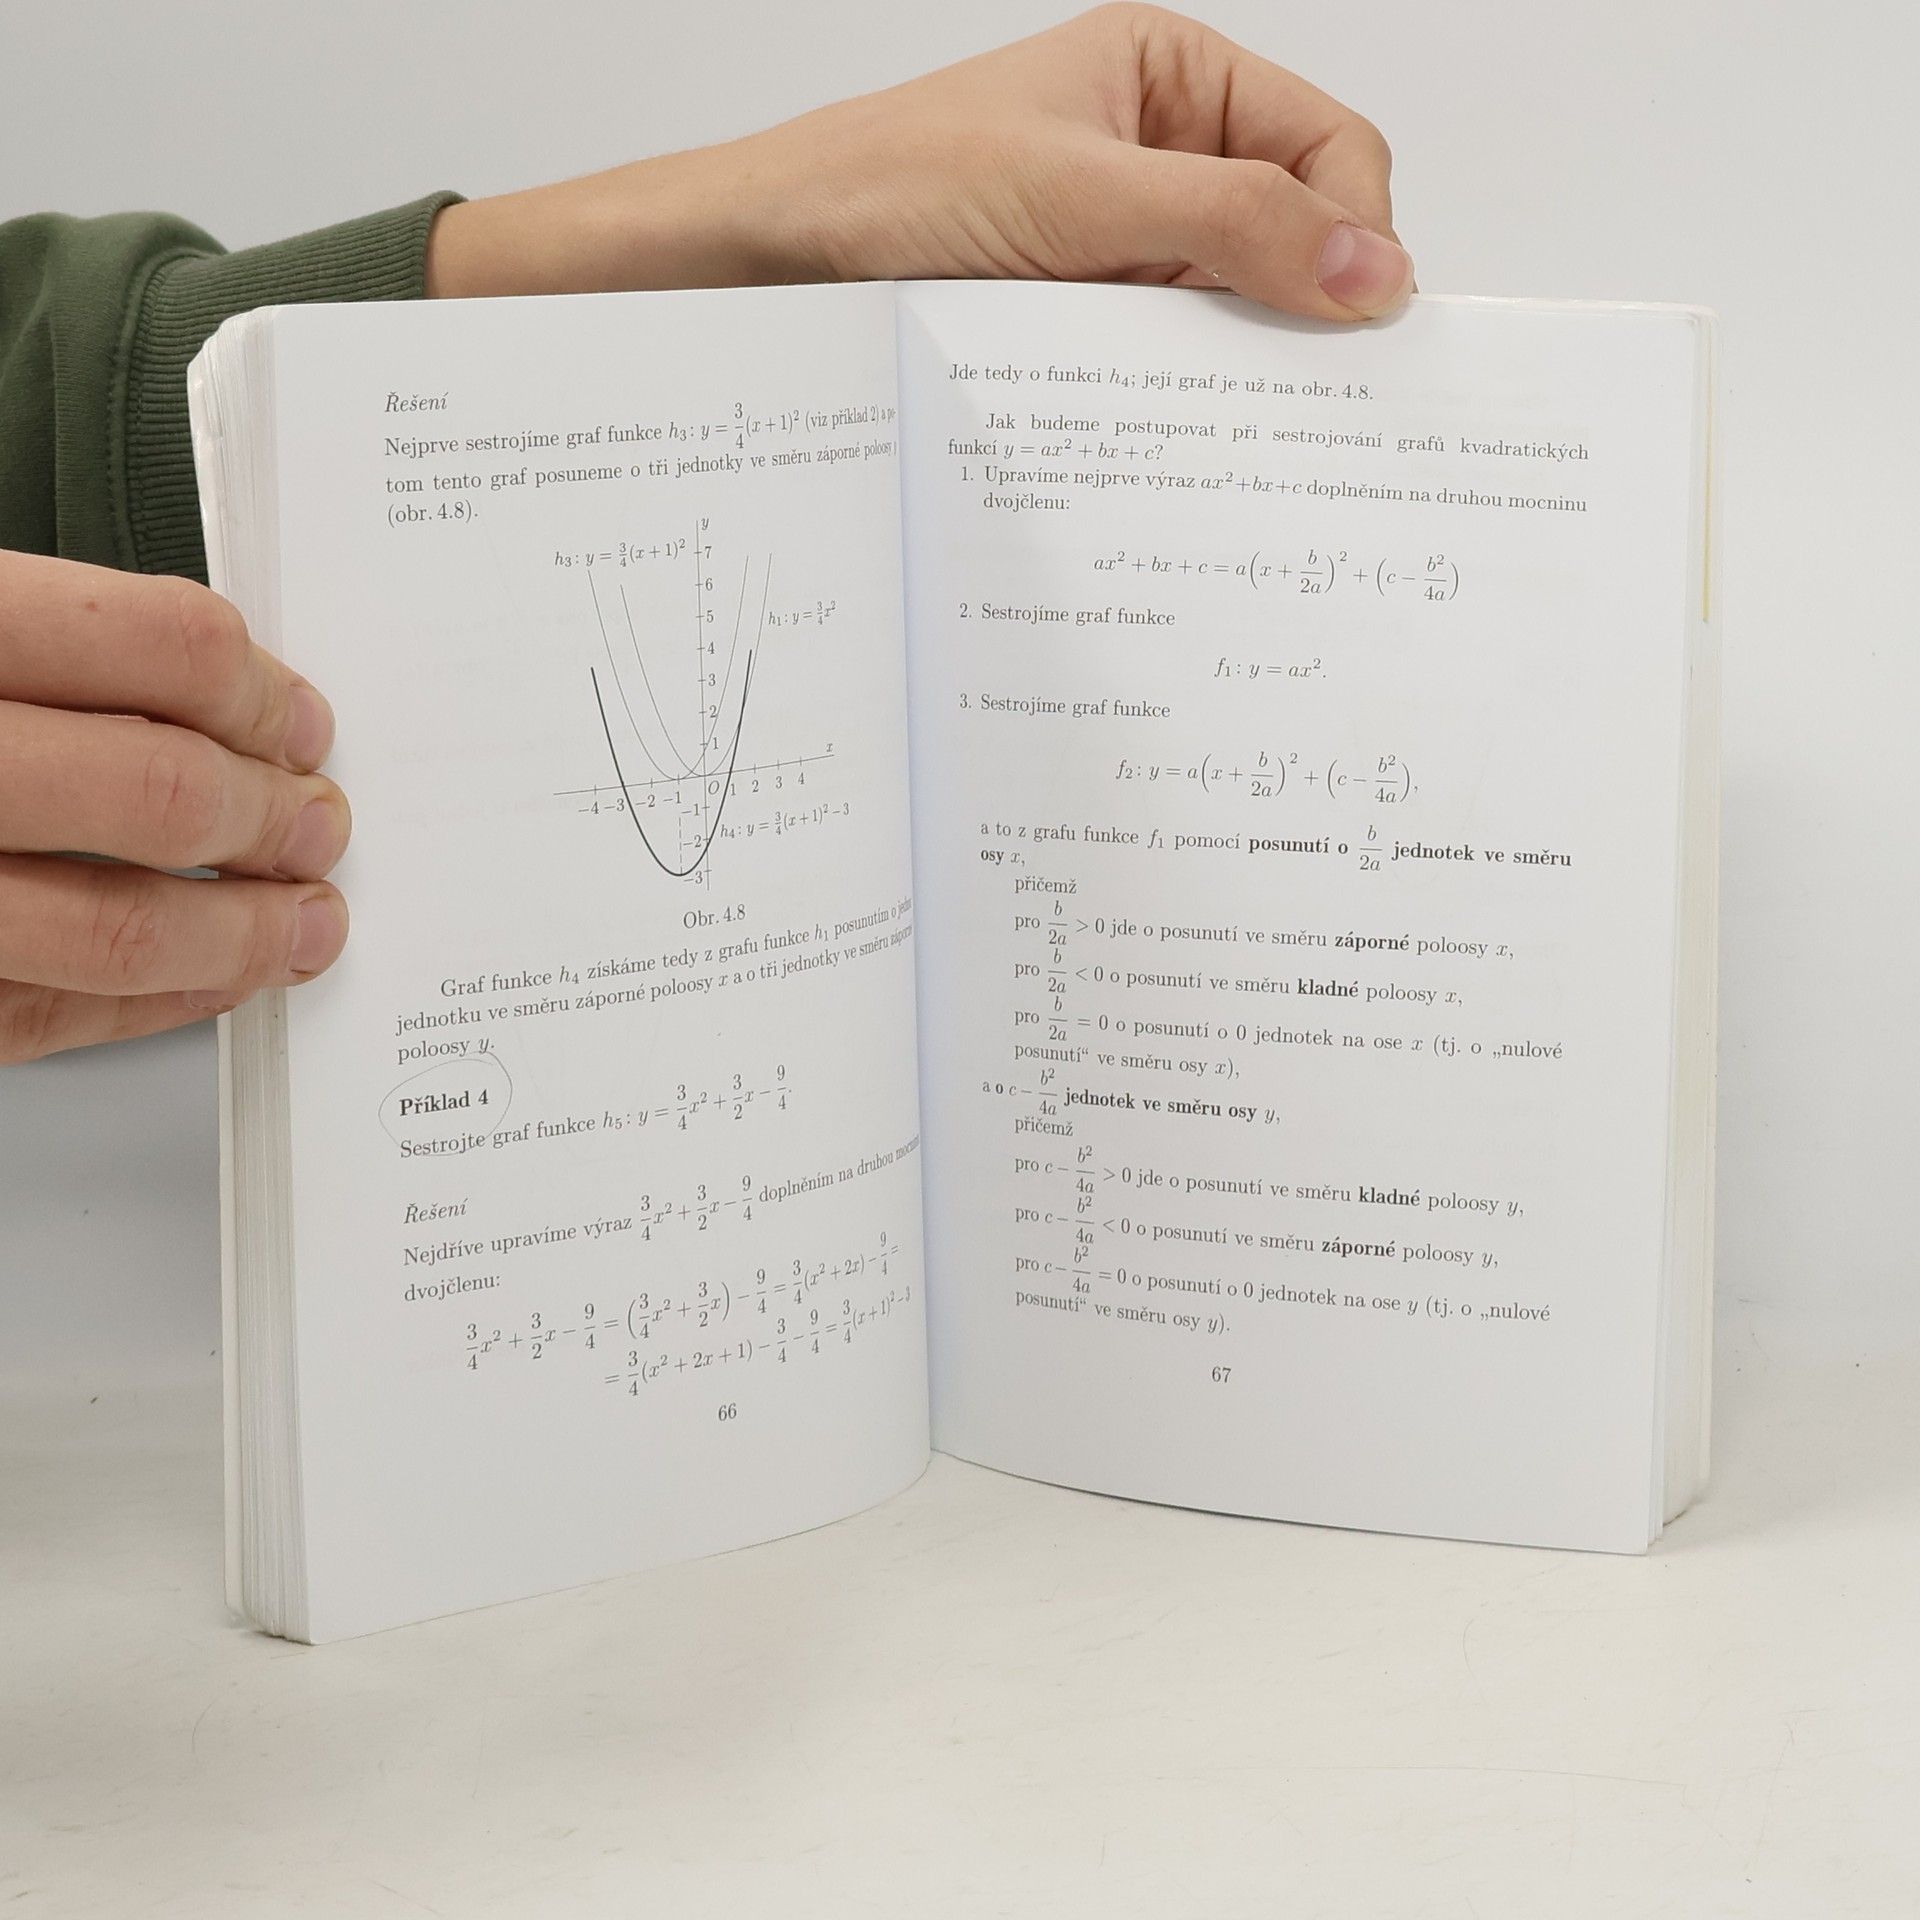 Řešení
Nejprve sestrojíme graf funkce h₃: y = 3/4(x + 1)² (viz příklad 2) a po-
tom tento graf posuneme o tři jednotky ve směru záporné poloosy y
(obr. 4.8).
y
h₃: y = 3/4(x + 1)²
7
6
5
h₁: y = 3/4x²
4
3
2
1
x
O
-4 -3 -2 -1 1 2 3 4
-1
h₄: y = 3/4(x + 1)² - 3
-2
-3
Obr. 4.8
Graf funkce h₄ získáme tedy z grafu funkce h₁ posunutím o
jednotku ve směru záporné poloosy x a o tři jednotky ve směru záporné
poloosy y.
Příklad 4
Sestrojte graf funkce h₅: y = 3/4x² + 3/2x − 9/4.
Řešení
Nejdříve upravíme výraz 3/4x² + 3/2x − 9/4 doplněním na druhou
dvojčlenu:
3/4x² + 3/2x − 9/4 = (3/4x² + 3/2x) − 9/4 = 3/4(x² + 2x) − 9/4 =
= 3/4(x² + 2x + 1) − 3/4 − 9/4 = 3/4(x + 1)² − 3
66
Jde tedy o funkci h₄; její graf je už na obr. 4.8.
Jak budeme postupovat při sestrojování grafů kvadratických
funkcí y = ax² + bx + c?
1. Upravíme nejprve výraz ax²+bx+c doplněním na druhou mocninu
dvojčlenu:
ax² + bx + c = a(x + b/2a)² + (c − b²/4a)
2. Sestrojíme graf funkce
f₁: y = ax².
3. Sestrojíme graf funkce
f₂: y = a(x + b/2a)² + (c − b²/4a),
a to z grafu funkce f₁ pomocí posunutí o b/2a jednotek ve směru
osy x,
přičemž
pro b/2a > 0 jde o posunutí ve směru záporné poloosy x,
pro b/2a < 0 o posunutí ve směru kladné poloosy x,
pro b/2a = 0 o posunutí o 0 jednotek na ose x (tj. o „nulové
posunutí“ ve směru osy x),
a o c − b²/4a jednotek ve směru osy y,
přičemž
pro c − b²/4a > 0 jde o posunutí ve směru kladné poloosy y,
pro c − b²/4a < 0 o posunutí ve směru záporné poloosy y,
pro c − b²/4a = 0 o posunutí o 0 jednotek na ose y (tj. o „nulové
posunutí“ ve směru osy y).
67